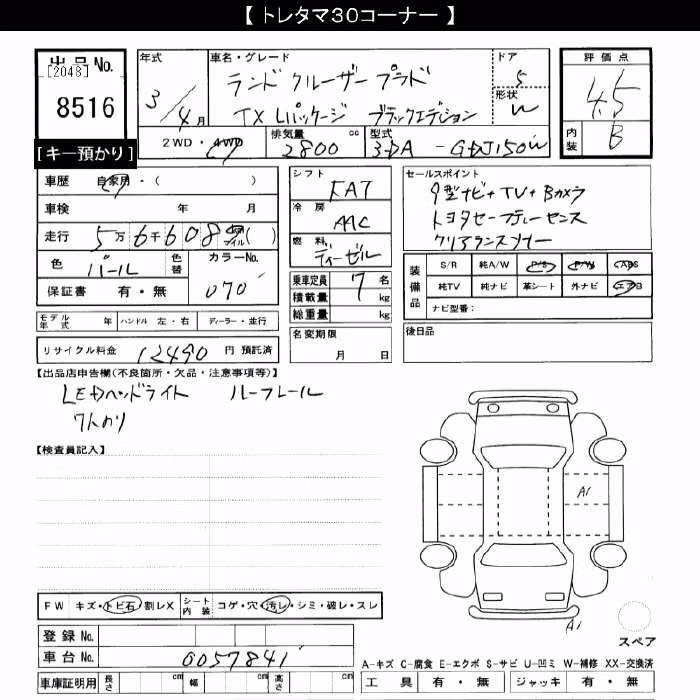 【 トレタマ30コーナー 】
出品No.
[2048]
8516
【キー預かり】
年式
3/4月
車名・グレード
ランドクルーザープラド
TX Lパッケージ ブラックエディション
ドア
5
形状
W
評価点
4.5
内装
B
2WD・4WD
排気量
2800 cc
型式
3DA-GDJ150W
車歴 自家用・( )
車検 年 月
走行 5万6千608 km マイル ( )
色 パール
色替
カラーNo.
070
保証書 有・無
シフト
FAT
冷房
AAC
燃料
ディーゼル
乗車定員 7 名
積載量 kg
総重量 kg
名変期限
月 日
セールスポイント
9型ナビ+TV+Bカメラ
トヨタセーフティーセンス
クリアランスソナー
装備品
S/R 純A/W P/S P/W ABS
純TV 純ナビ 革シート 外ナビ エアB
ナビ型番:
後日品
モデル年式 年 ハンドル 左・右 ディーラー・並行
リサイクル料金 12490 円 預託済
【出品店申告欄(不良箇所・欠品・注意事項等)】
LEDヘッドライト ルーフレール
7人のり
【検査員記入】
A1
A1
FW キズ・トビ石・割レX
シート内装 コゲ・穴・汚レ・シミ・破レ・スレ
登録No.
車台No. 0057841
車庫証明用 長さ cm 幅 cm 高さ cm
スペア
A-キズ C-腐食 E-エクボ S-サビ U-凹ミ W-補修 XX-交換済
工具 有・無 ジャッキ 有・無